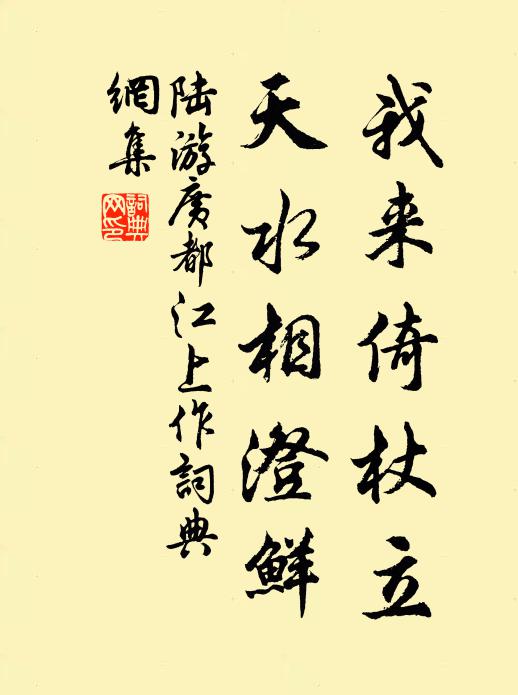 我来倚杖立
天水相澄鮮
陆游广都江上作詞典
網集
詞典
网印